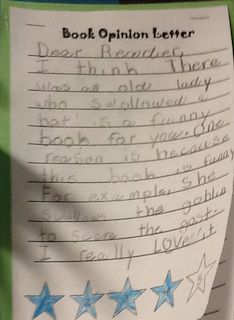 Book Opinion Letter
Dear Reader,
I think There
was an old lady
who swollowed a
bat! is a funny
book for you. One
reason is because
this book is funny
For example, she
swallows the goblin
to scare the gost.
I really LOVE it